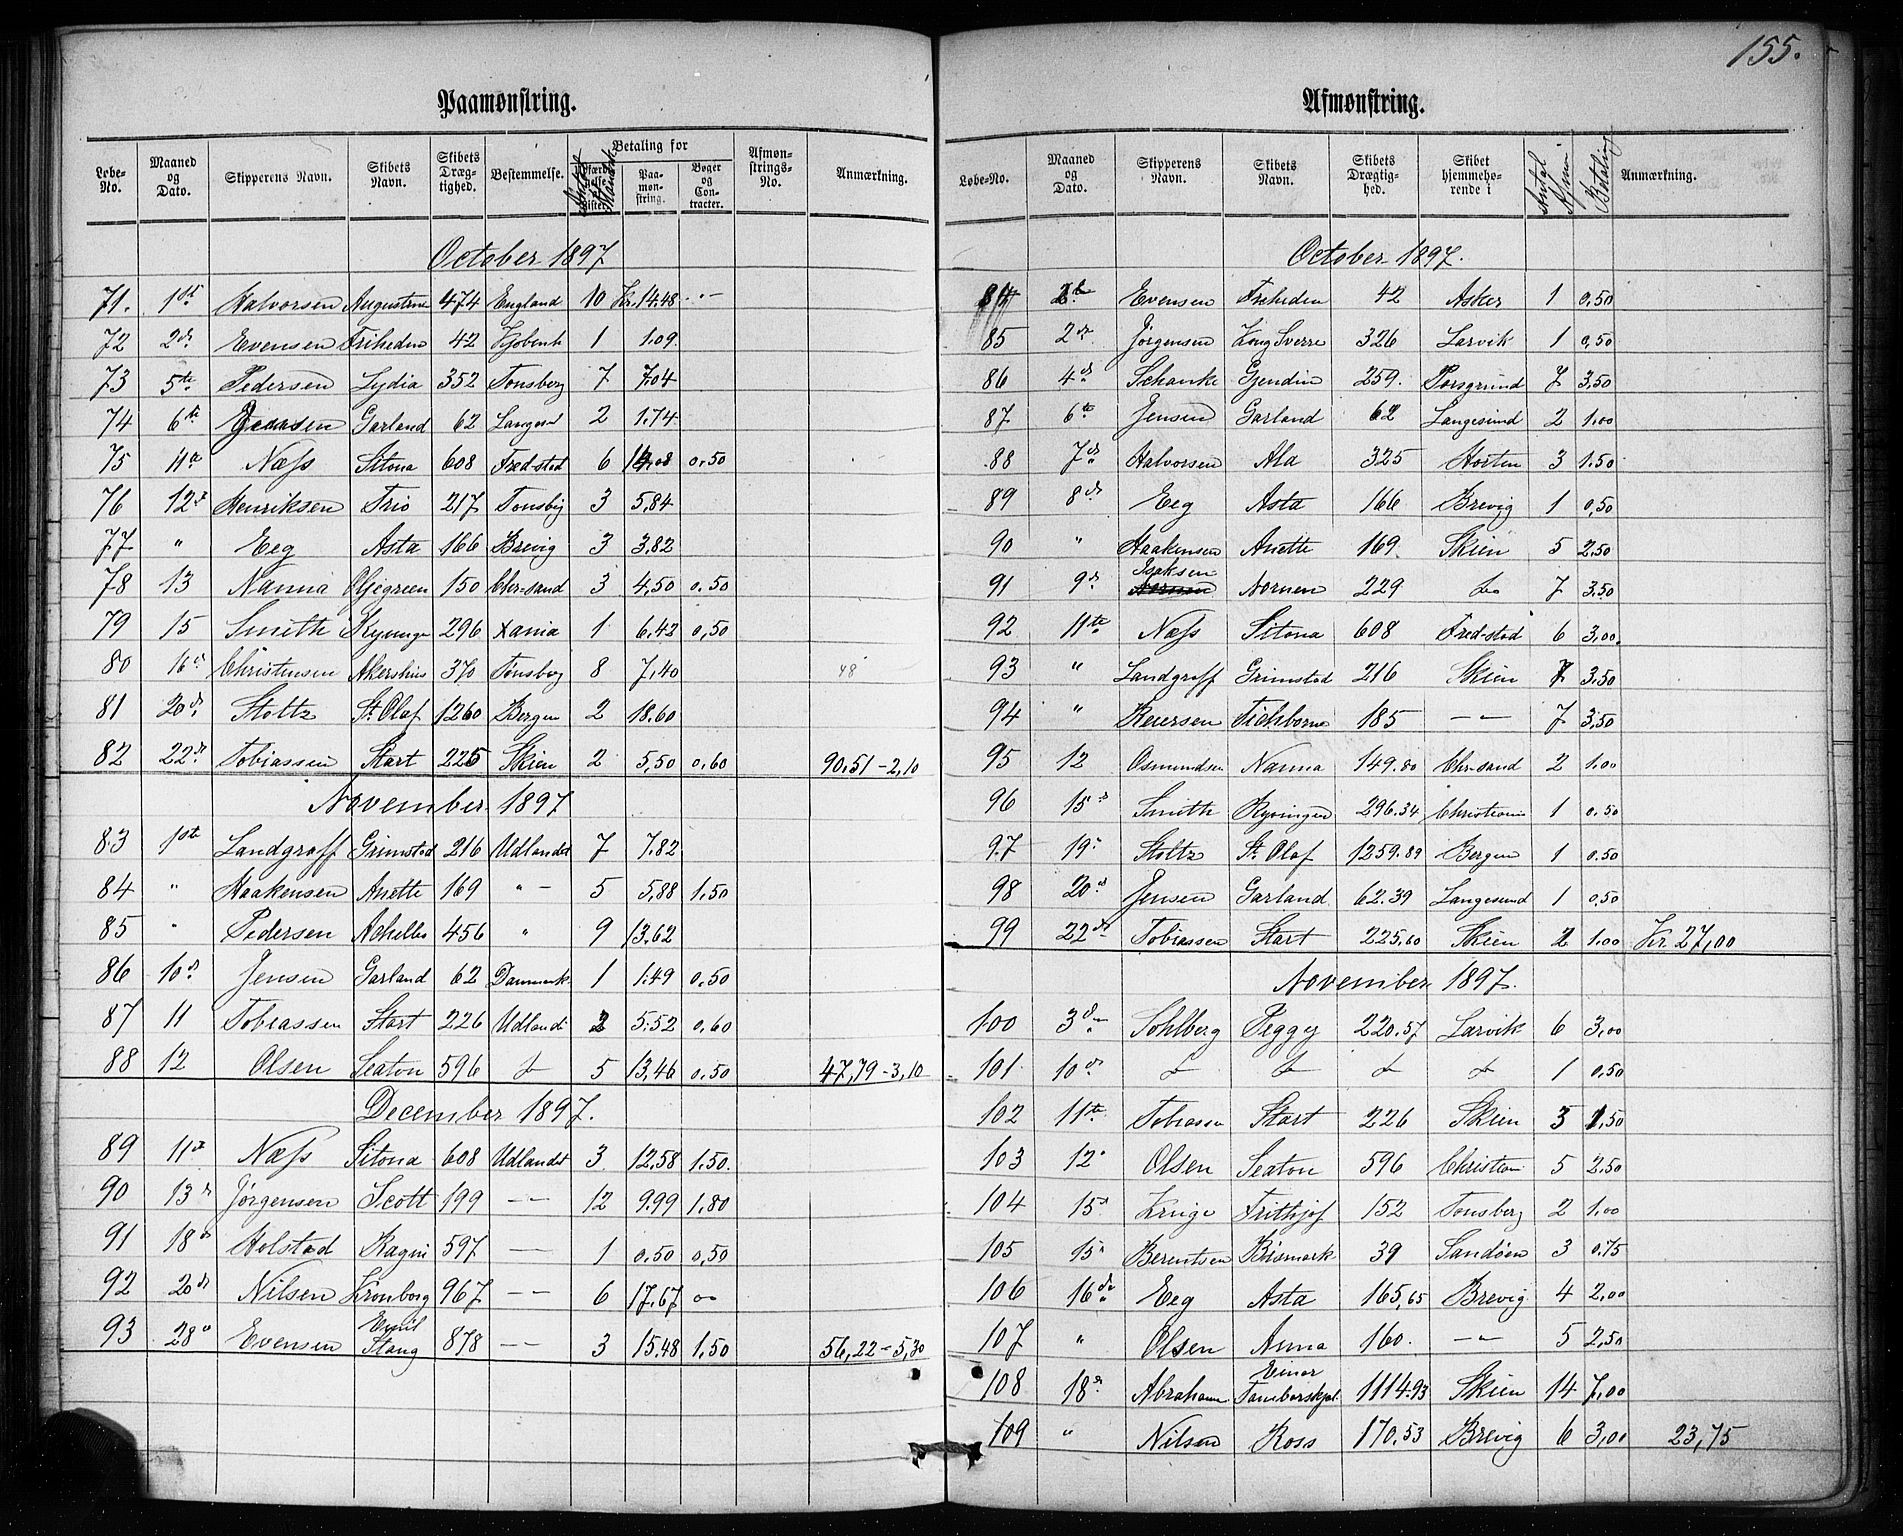 155.
Paamønstring.
Løbe-No. Maaned og Dato. Skipperens Navn. Skibets Navn. Skibets Drægtighed. Bestemmelse. Betaling for Paamønstring. Bøger og Contracter. Afmønstrings-No. Anmærkning.
October 1897
71. 1ste Halvorsen Augustine 474 England 10 Kr. 14.48 . . –
72 2d. Evensen Friheden 42 Kjøbenh 1 1.09.
73 5te Pedersen Lydia 352 Tonsberg 7 7.04
74 6te Jensen Garland 62 Langesd 2 1.74.
75 11te Næss Sitona 608 Fred-stad 6 14.08 0.50
76 12te Henriksen Trio 217 Tonsbg 3 5,84
77 " Eeg Asta 166 Brevig 3 3.82
78 13 Nanna 150 Chr-sand 3 4,50 0.50
79 15 Smith 296 Xania 1 6.42 0,50
80 16d Christensen Akershus 370 Tonsberg 8 7,40 48
81 20d. Stoltz St. Olaf 1260 Bergen 2 18.60
82 22d. Tobiassen Start 225 Skien 2 5,50 0,60 90,51 – 2,10
November 1897
83 1ste Landgraff Grimstad 216 Udlandet 7 7.82
84 " Haakensen Anette 169 " – 5 5,88 1,50
85 " Pedersen Achilles 456 " 9 13,62
86 10d Jensen Garland 62 Danmark 1 1.49 0,50
87 11 Tobiassen Start 226 Udland 2 5.52 0,60
88 12 Olsen Seaton 596 do 5 13,46 0,50 47,79 – 3,10
December 1897.
89 11te Næss Sitona 608 Udlandet 3 12,58 1,50.
90 13d Jørgensen Scott 199 – – 12 9.99 1,80
91 18d Holstad Ragni 597 – – 1 0.50 0,50
92 20d Nilsen Kronborg 967 – – 6 17,67 00
93 28d Evensen Emil Stang 878 – – 3 15.48 1,50 56,22 – 5,30
Afmønstring.
Løbe-No. Maaned og Dato. Skipperens Navn. Skibets Navn. Skibets Drægtighed. Skibet hjemmehørende i Antal Betaling Anmærkning.
October 1897.
84 Evensen Friheden 42 Asker 1 0.50
85 2d. Jørgensen Kong Sverre 326 Larvik 1 0,50
86 4d. Schanke Gjendin 259. Porsgrund 7 3.50
87 6te Jensen Garland 62 Langesund 2 1.00
88 7d. Halvorsen Ala 325 Horten 3 1.50
89 8d. Eeg Asta 166 Brevig 1 0,50
90 " Haakensen Anette 169. Skien 5 2,50
91 9d. Isaksen Nornen 229 do 7 3.50
92 11te Næss Sitona 608 Fred-stad 6 3,00.
93 " Landgraff Grimstad 216 Skien 7 3.50
94 " Reiersen Tichborne 185 – " – 7 3,50
95 12 Osmundsen Nanna 149.80 Chr-sand 2 1.00
96 15d Smith Kyvingen 296.34 Christiania 1 0.50
97 19. Stoltz St. Olaf 1259.89 Bergen 1 0.50
98 20d Jensen Garland. 62.39 Langesund 1 0,50
99 22d Tobiassen Start 225,60 Skien 2 1.00 Kr. 27,00
November 1897.
100 3d. Sohlberg Peggy 220.57 Larvik 6 3,00
101 10d. do do do do 1 0,50
102 11te Tobiassen Start 226 Skien 3 1,50
103 12. Olsen Seaton 596 Christiania 5 2.50
104 15d Kruge Frithjof 152 Tonsberg 2 1.00
105 15. Berentsen Bismark 39 Sandøen 3 0.75
106 16d. Eeg Asta 165,65 Brevig 4 2,00
107 " Olsen Anna 160. – " – 5 2,50
108 18d. Abraham Einar Tambarskjel. 1114.93 Skien 14 7,00
109 " Nilsen Ross 170.53 Brevig 6 3,00 23,75